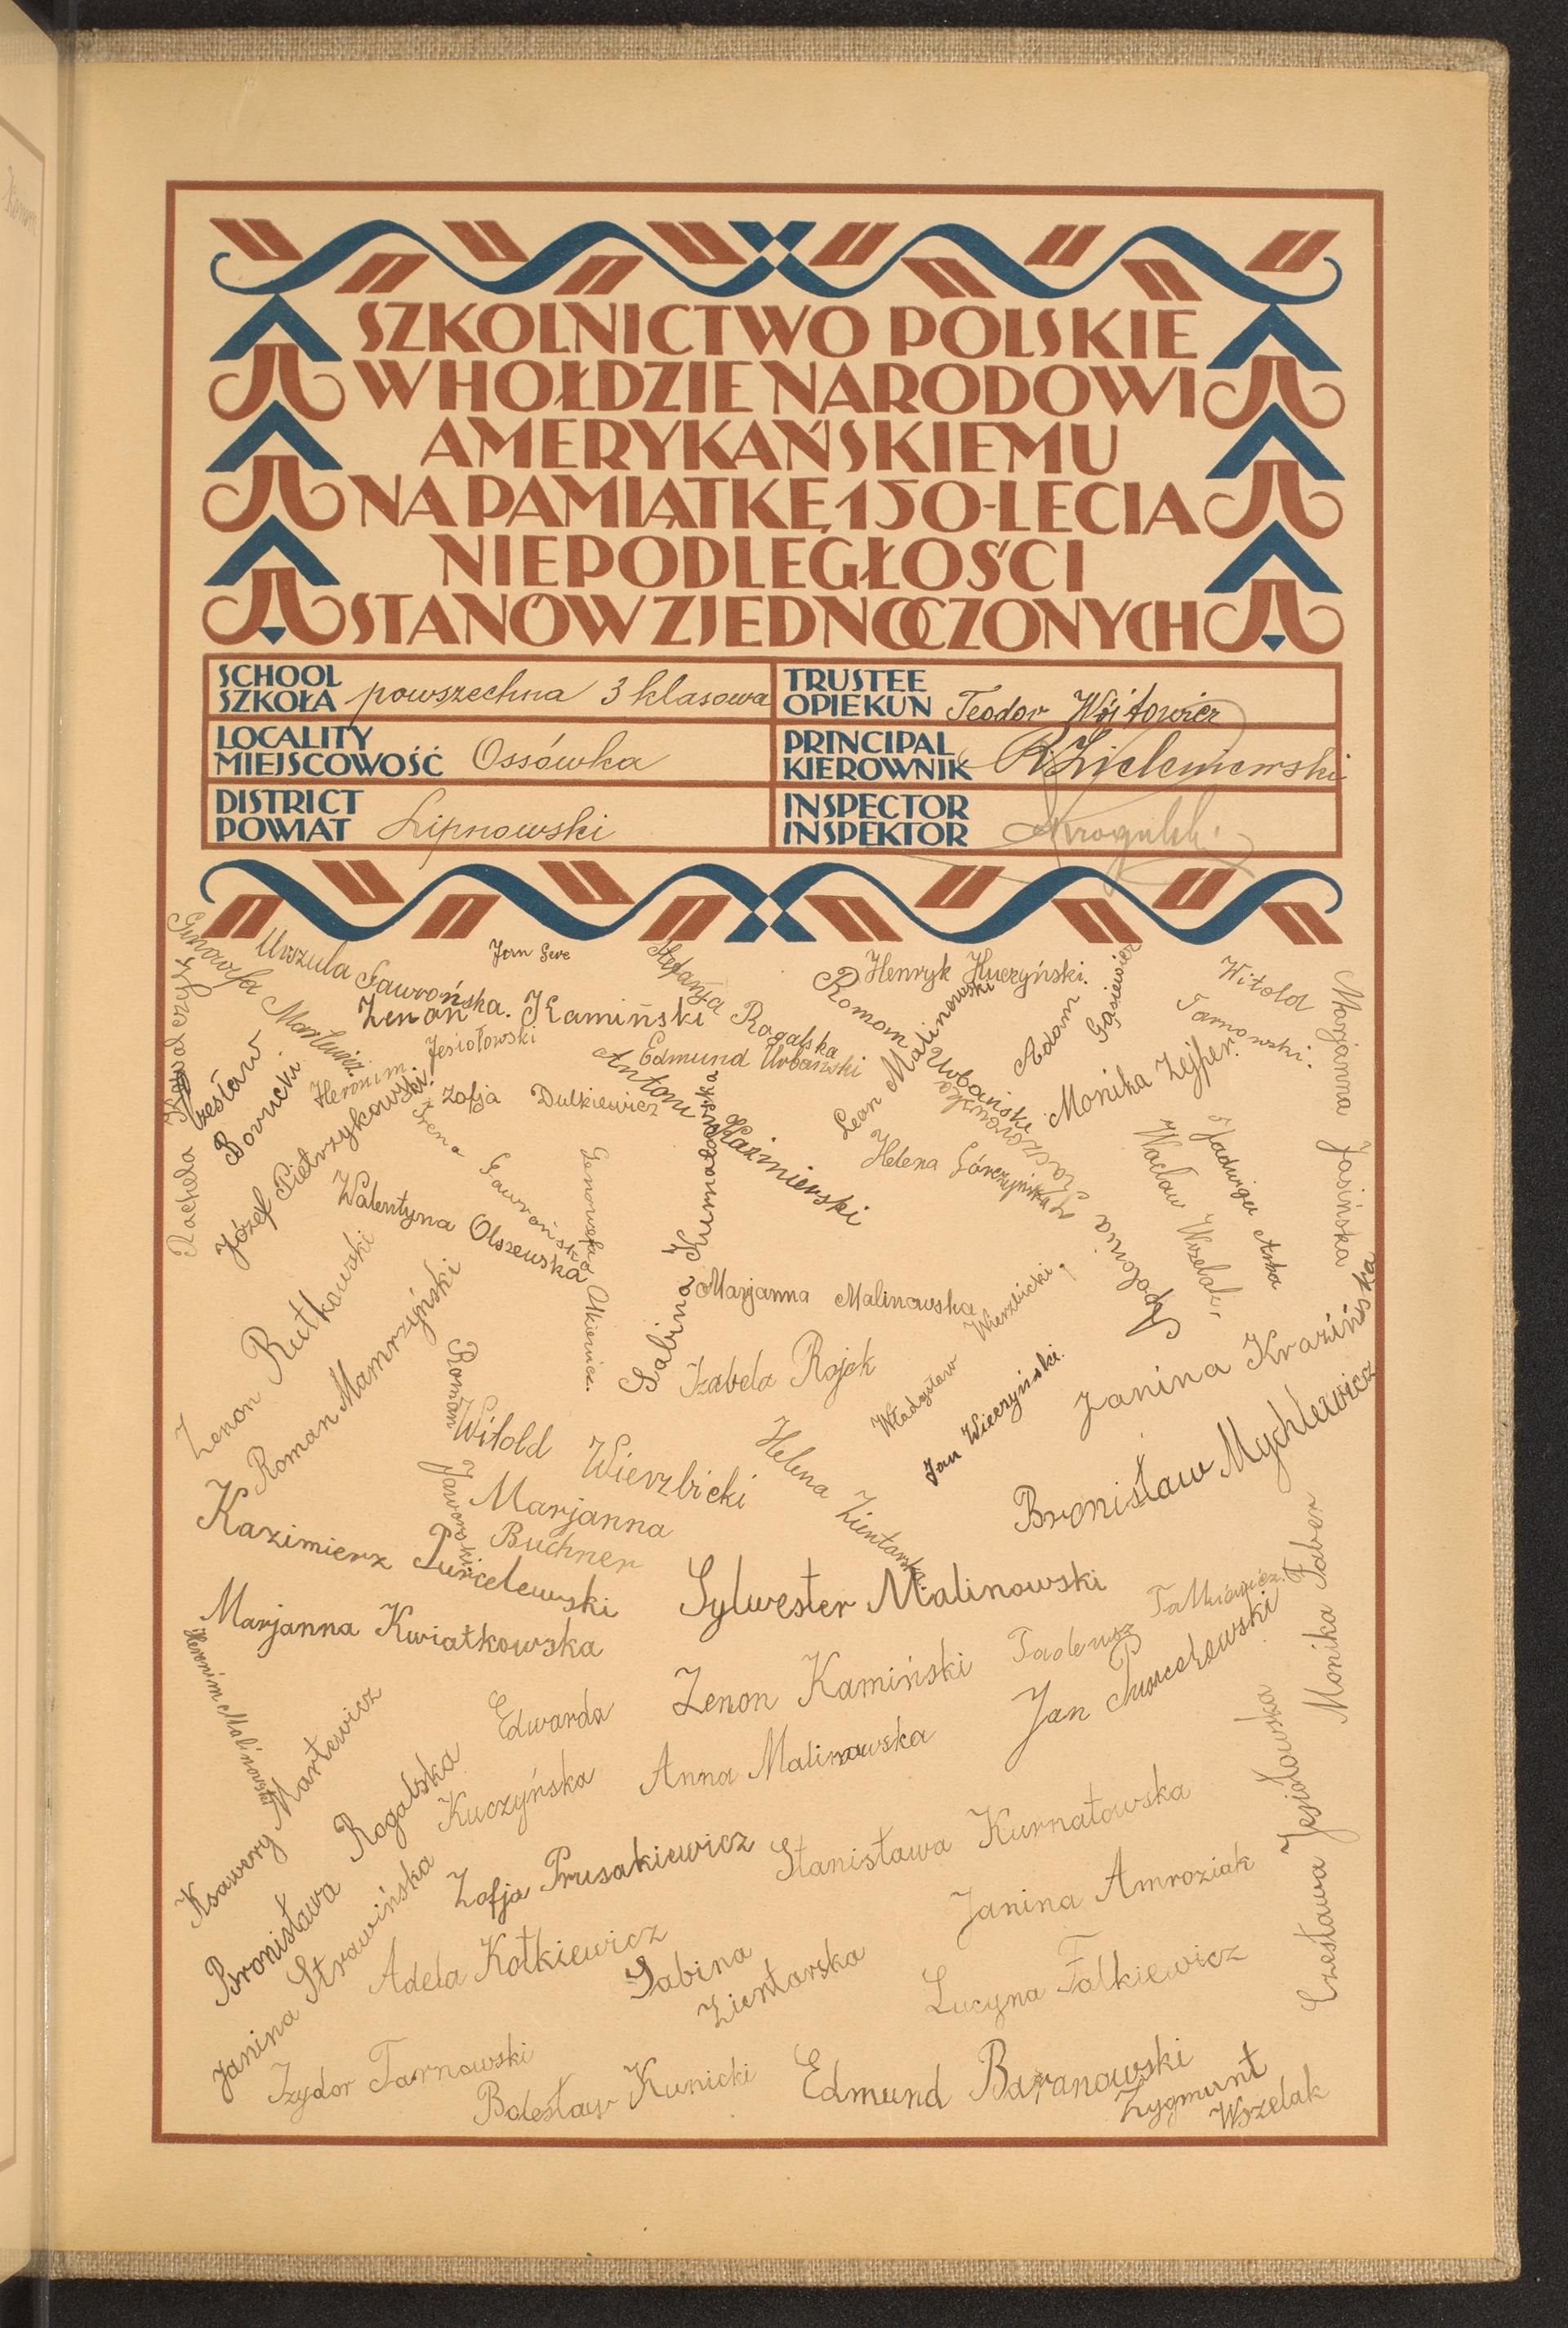 SZKOLNICTWO POLSKIE
W HOŁDZIE NARODOWI
AMERYKAŃSKIEMU
NA PAMIĄTKĘ 150-LECIA
NIEPODLEGŁOŚCI
STANÓW ZJEDNOCZONYCH
SCHOOL
SZKOŁA powszechna 3 klasowa
TRUSTEE
OPIEKUN Teodor Wójtowicz
LOCALITY
MIEJSCOWOŚĆ Ossówka
PRINCIPAL
KIEROWNIK
DISTRICT
POWIAT Lipnowski
INSPECTOR
INSPEKTOR
Genowefa Martewicz
Urszula Gawrońska.
Jan
Stefanja Rogalska
Henryk Kuczyński.
Adam Gąsiewicz
Witold Tarnowski.
Marjanna Jasińska
Rachela
Zenon Kamiński
Heronim Jesiołowski
Edmund Urbański
Roman Urbański
Leon Malinowski
Monika Zejfer.
Józef Pietrzykowski.
Zofja Dulkiewicz
Antoni Kaźmierski
Helena Górczyńska
Irena Gawrońska
Wacław Wrzelak.
Jadwiga
Walentyna Olszewska
Genowefa
Sabina Kurnatowska
Apolonja
Marjanna Malinowska
Władysław Wierzbicki.
Zenon Rutkowski
Roman Mamrzyński
Roman Jaworski.
Izabela Rojek
Jan Wieczyński.
Janina Krazińska
Witold Wierzbicki
Helena Zientarska
Bronisław Mychlewicz
Marjanna
Buchner
Kazimierz Purcelewski
Sylwester Malinowski
Marjanna Kwiatkowska
Tadeusz Falkiewicz.
Monika Faber
Heronim Malinowski
Zenon Kamiński
Jan Purcelewski
Ksawery Martewicz
Edwarda
Kuczyńska
Anna Malinowska
Bronisława Rogalska
Zofja Prusakiewicz
Stanisława Kurnatowska
Czesława Jesiołowska
Janina Strawińska
Adela Kotkiewicz
Janina Amroziak
Sabina
Zientarska
Lucyna Falkiewicz
Izydor Tarnowski
Bolesław Kunicki
Edmund Baranowski
Zygmunt
Wrzelak